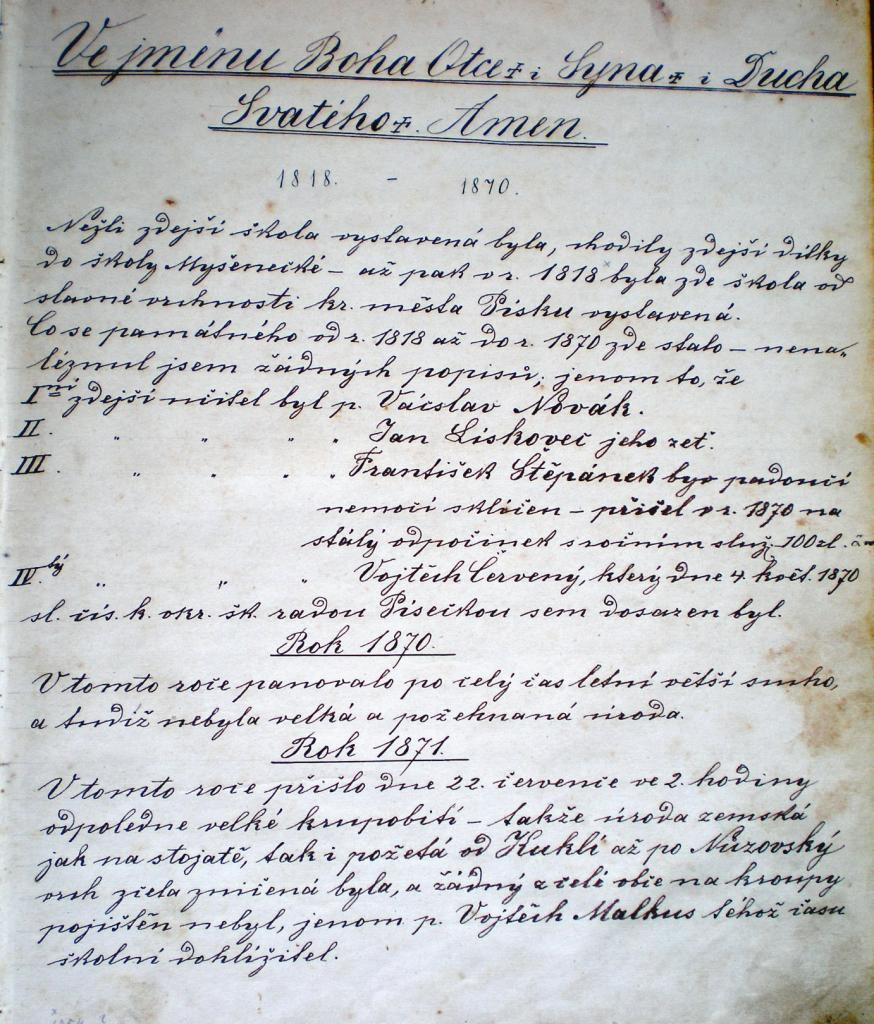 Ve jménu Boha Otce ✝ i Syna ✝ i Ducha
Svatého ✝. Amen.
1818. - 1870.
Nežli zdejší škola vystavená byla, chodily zdejší dítky
do školy Myšenecké – až pak v r. 1818 byla zde škola od
slavné vrchnosti kr. města Písku vystavená.
Co se památného od r. 1818 až do r. 1870 zde stalo – nena„
léznul jsem žádných popisů; jenom to, že
I.ní zdejší učitel byl p. Vácslav Novák.
II. " " " " Jan Liskovec jeho zeť.
III. " " " " František Štěpánek byv padoucí
nemocí sklíčen – přišel v r. 1870 na
stálý odpočinek s ročním služ. 100 zl.
IV.tý " " " Vojtěch Červený, který dne 4. květ. 1870
sl. cís. k. okr. šk. radou Píseckou sem dosazen byl.
Rok 1870.
V tomto roce panovalo po celý čas letní větší sucho,
a tudíž nebyla velká a požehnaná úroda.
Rok 1871.
V tomto roce přišlo dne 22. července ve 2. hodiny
odpoledne velké krupobití – takže úroda zemská
jak na stojatě, tak i požetá od Kuklí až po Nůzovský
vrch zcela zničená byla, a žádný z celé obce na kroupy
pojištěn nebyl, jenom p. Vojtěch Malkus téhož času
školní dohlížitel.